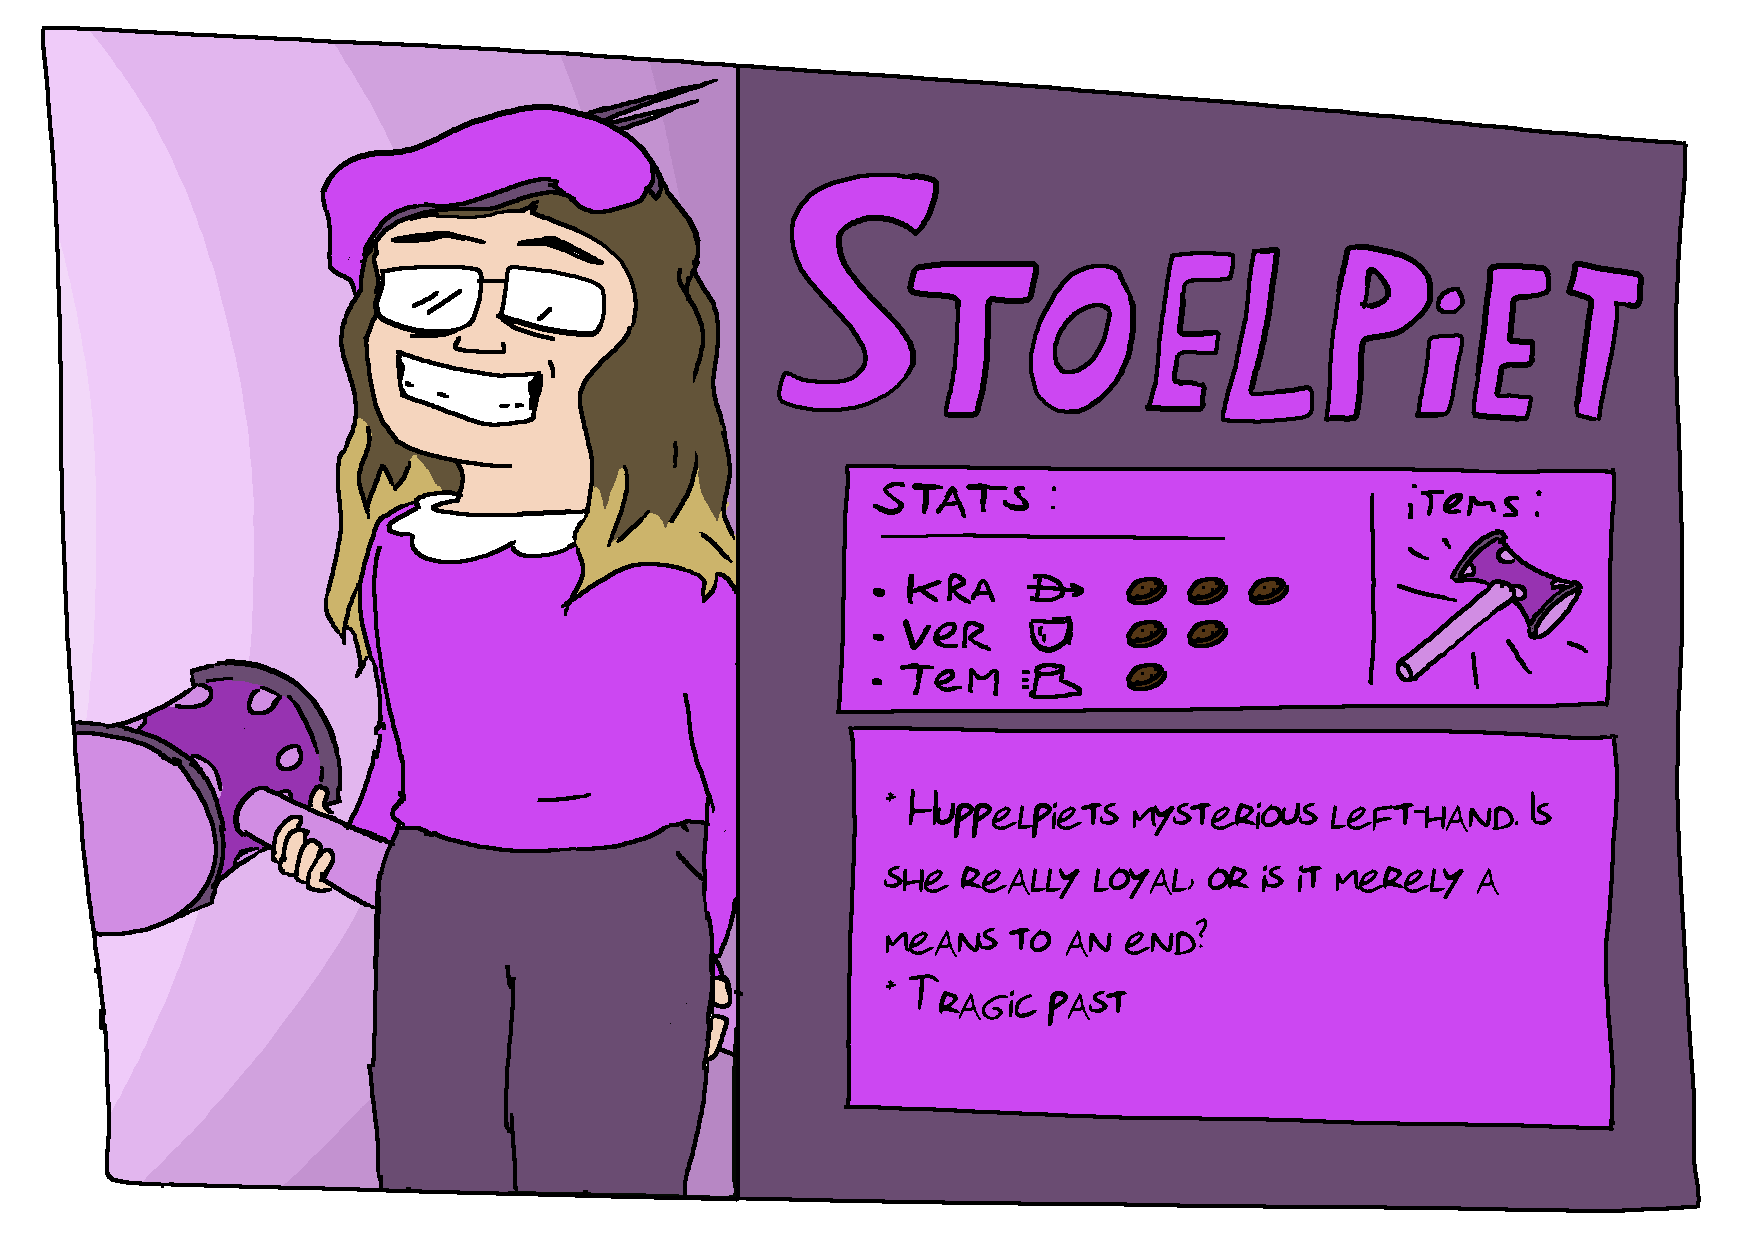 STOELPiET
STATS:
iTems:
• KRA
• VeR
• TeM
* Huppelpiets mysterious left-hand. Is
she really loyal, or is it merely a
means to an end?
* Tragic past